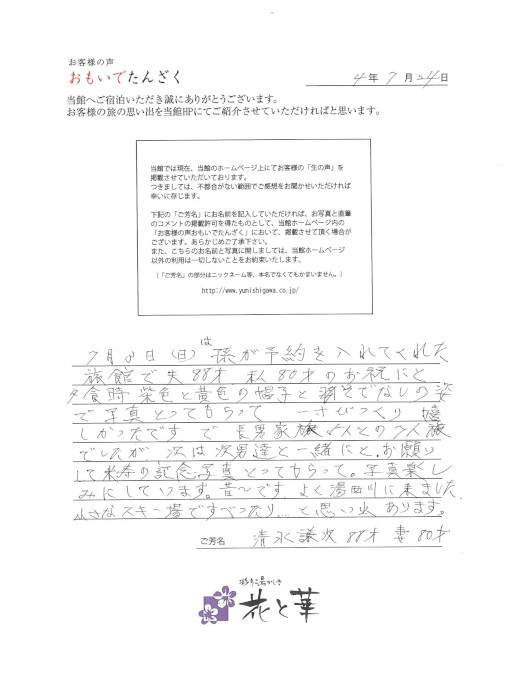 お客様の声
おもいでたんざく
4年 7月 24日
当館へご宿泊いただき誠にありがとうございます。
お客様の旅の思い出を当館HPにてご紹介させていただければと思います。
当館では現在、当館のホームページ上にてお客様の「生の声」を
掲載させていただいております。
つきましては、不都合がない範囲でご感想をお聞かせいただければ
幸いに存じます。
下記の「ご芳名」にお名前を記入していただければ、お写真と直筆
のコメントの掲載許可を得たものとして、当館ホームページ内の
「お客様の声おもいでたんざく」において、掲載させて頂く場合が
ございます。あらかじめご了承下さい。
また、こちらのお名前と写真に関しましては、当館ホームページ
以外の利用は一切しないことをお約束いたします。
(「ご芳名」の部分はニックネーム等、本名でなくてもかまいません。)
http://www.yunishigawa.co.jp/
は
7月 日(日) 孫が予約を入れてくれた
旅館で夫88才 私80才のお祝にと
夕食時紫色と黄色の帽子と 袖そでなしの姿
で写真とってもらって びっくり 嬉
しかったです で長男家族 人との 人旅
でしたが 次は次男達と一緒にと。お願り
して米寿の記念写真とってもらって。写真楽し
みにしています。昔〜です よく湯西川に来ました
小さなスキー場ですべったり…と思い出あります。
ご芳名 清水謙次 88才 妻 80才
花と華